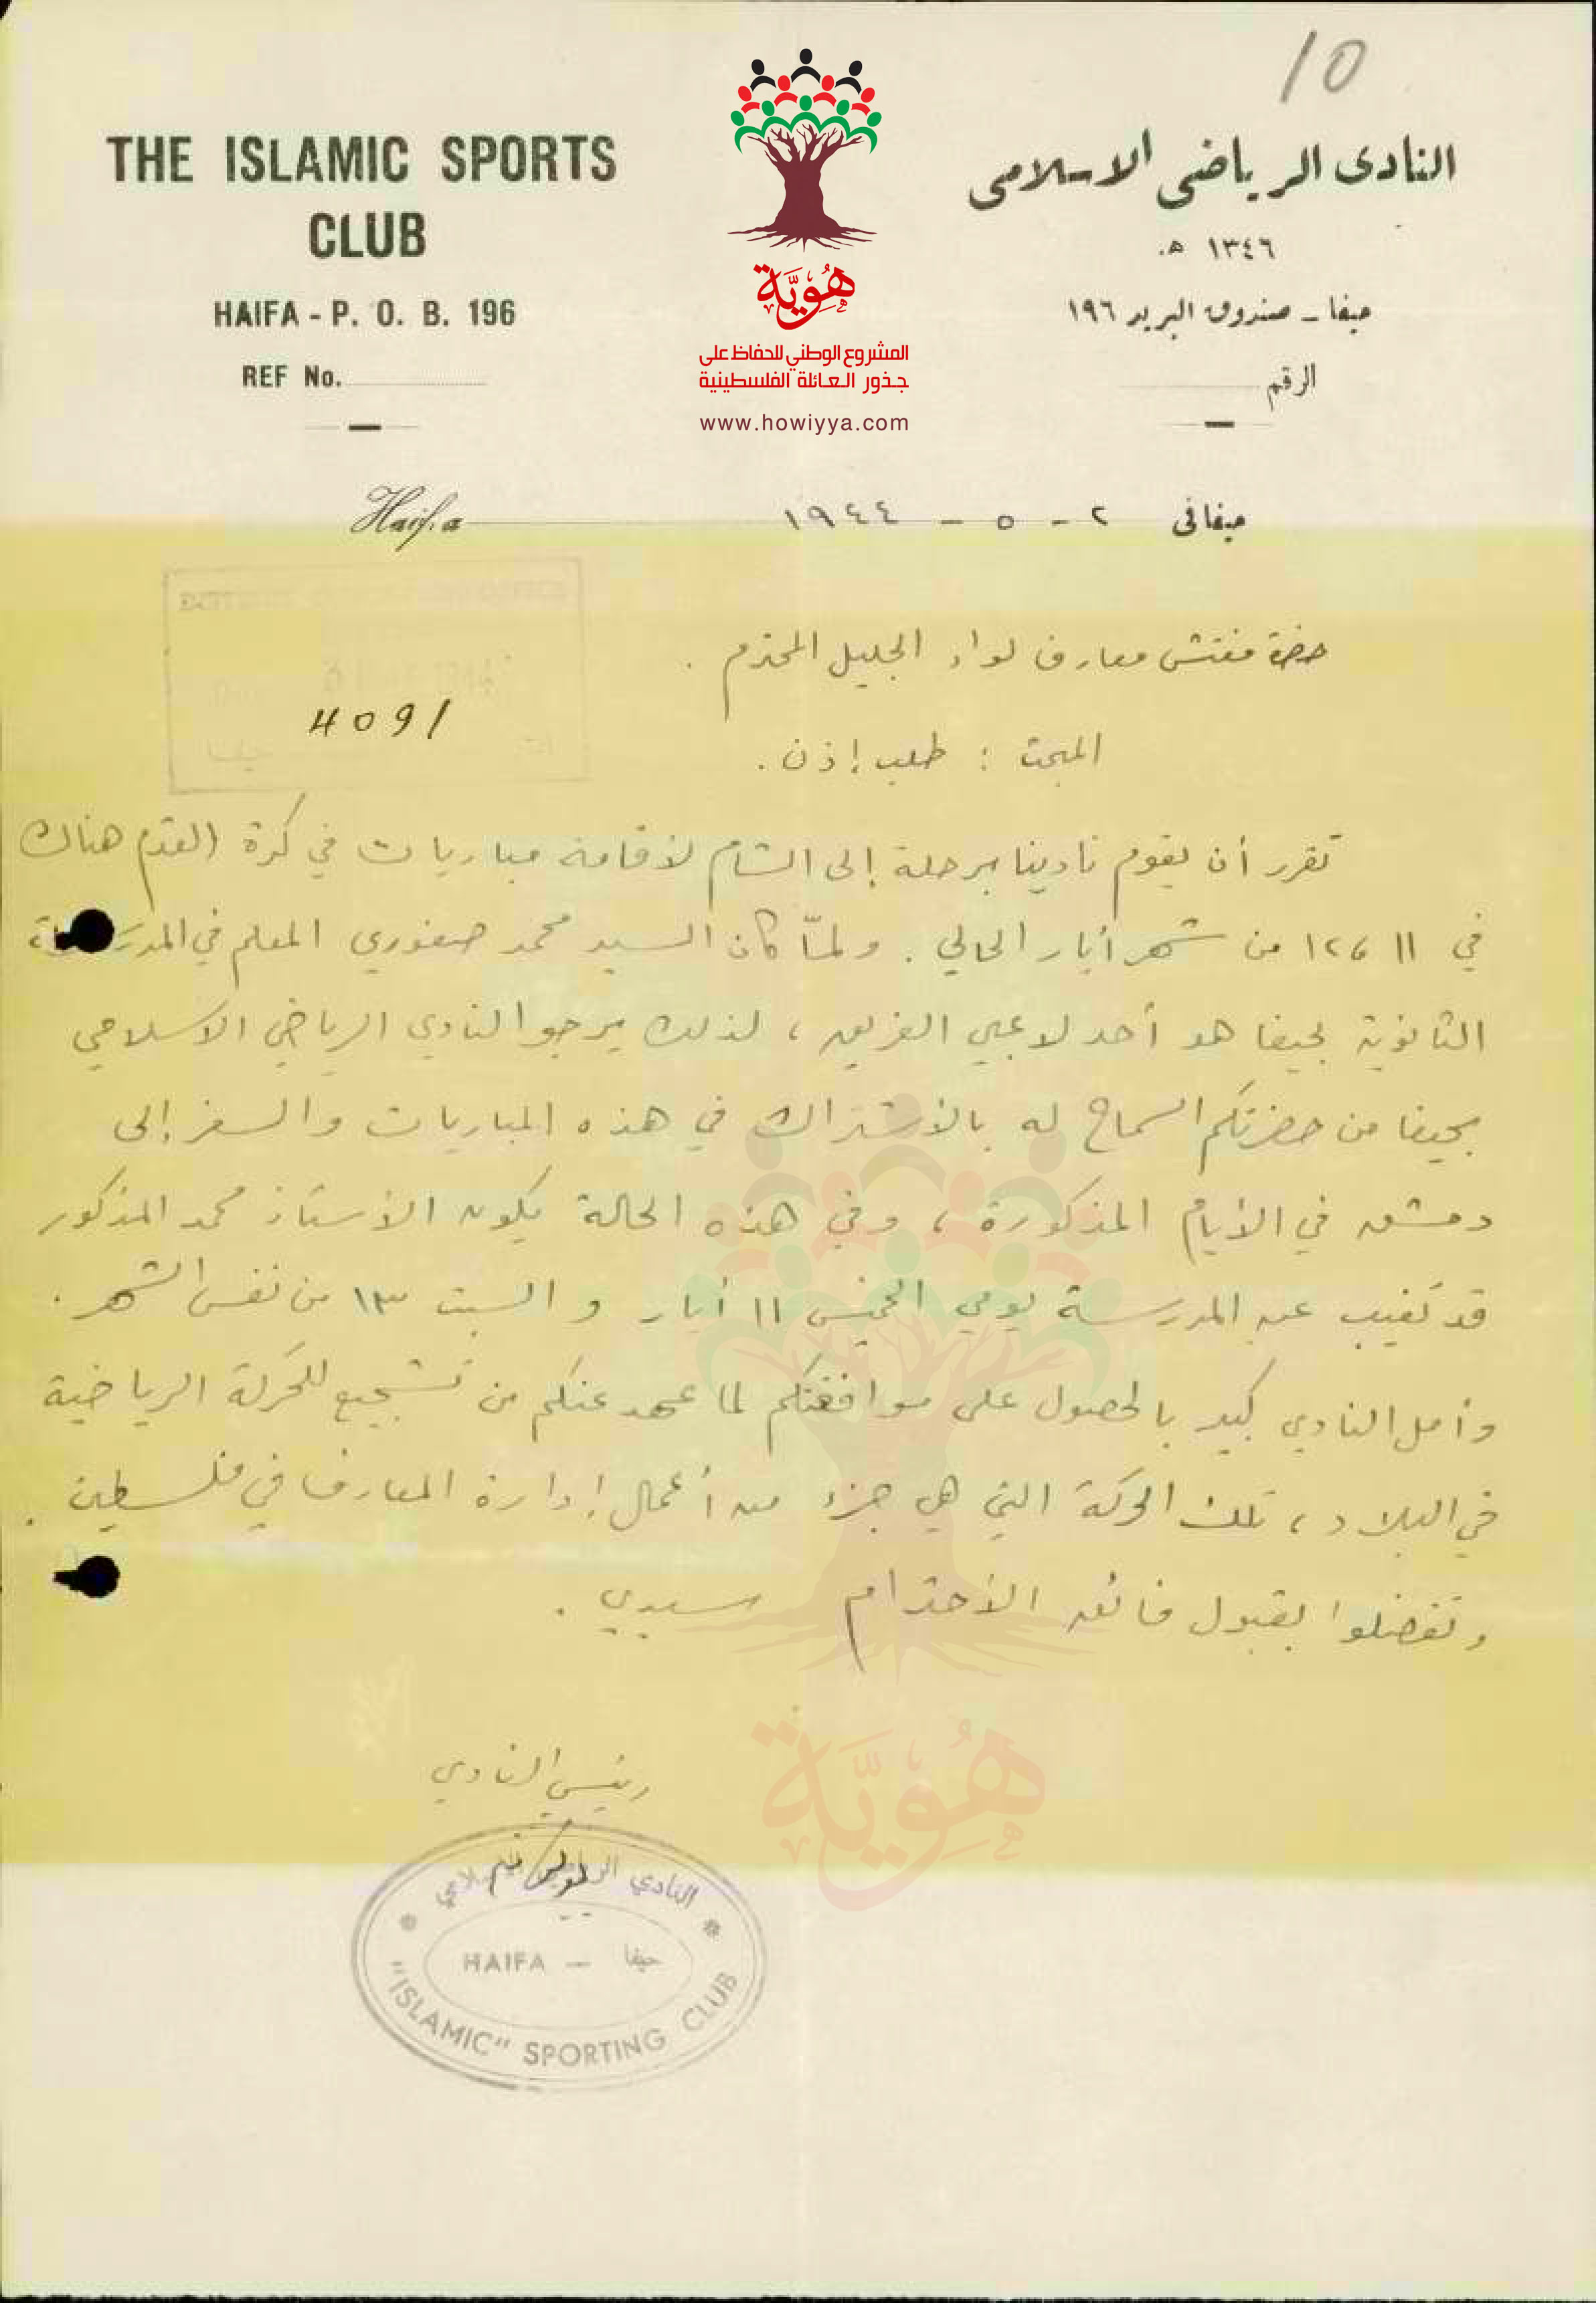 10
THE ISLAMIC SPORTS
CLUB
HAIFA - P. O. B. 196
REF No.
هُوِيَّة
المشروع الوطني للحفاظ على
جذور العائلة الفلسطينية
www.howiyya.com
النادى الرياضى الاسلامى
١٣٤٦ ه.
حيفا - صندوق البريد ١٩٦
الرقم
Haifa
حيفا فى ٢ - ٥ - ١٩٤٤
حضرة مفتش معارف لواء الجليل المحترم .
4091
المبحث : طلب إذن .
تقرر أن يقوم نادينا برحلة إلى الشام لأقامة مباريات في كرة القدم هناك
في ١١ ، ١٢ من شهر أيار الحالي . ولمّا كان السيد محمد صفوري المعلم في
الثانوية بحيفا هو أحد لاعبي الفريق ، لذلك يرجو النادي الرياضي الاسلامي
بحيفا من حضرتكم السماح له بالأشتراك في هذه المباريات والسفر إلى
دمشق في الأيام المذكورة ، وفي هذه الحالة يكون الأستاذ محمد المذكور
قد تغيب عن المدرسة يومي الخميس ١١ أيار و السبت ١٣ من نفس الشهر .
وأمل النادي كبير بالحصول على موافقتكم لما عهد عنكم من تشجيع للحركة الرياضية
في البلاد ، تلك الحركة التي هي جزء من أعمال إدارة المعارف في فلسطين .
وتفضلوا بقبول فائق الأحترام سيدي .
رئيس النادي
النادي
حيفا – HAIFA
"ISLAMIC" SPORTING CLUB
هُوِيَّة